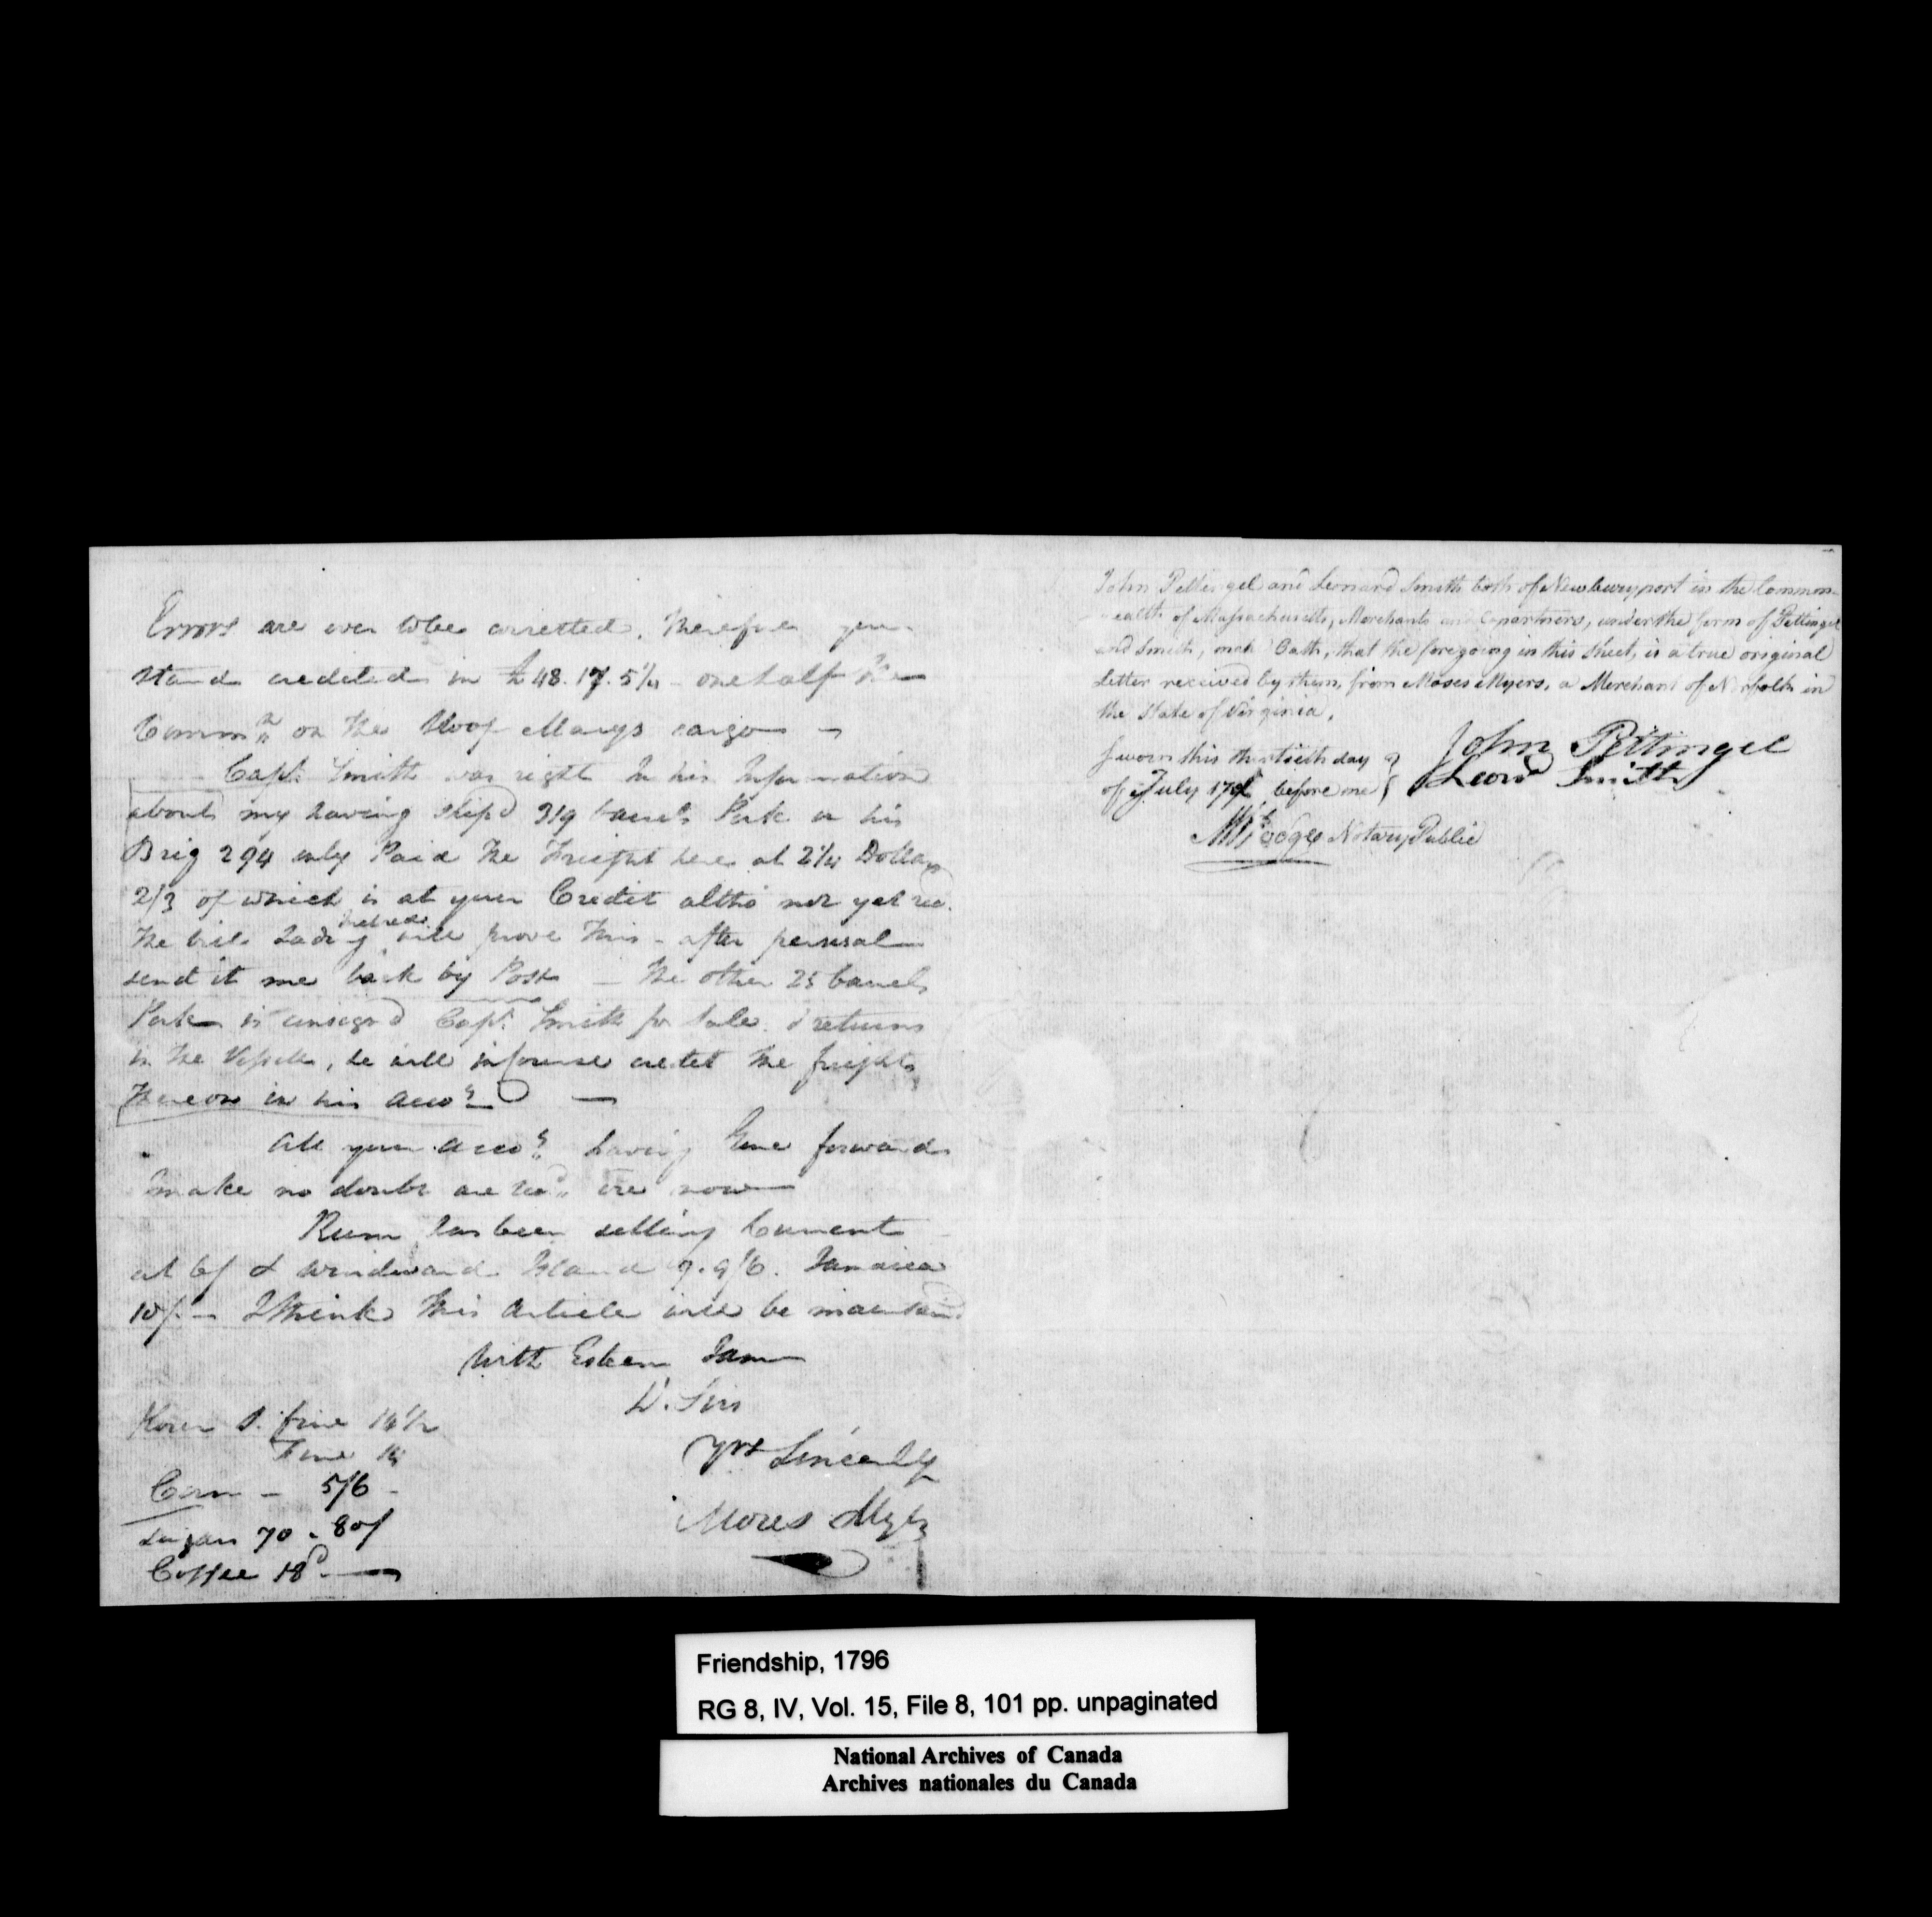 Errors are ever to be corrected. Therefore you
stand credited in £48.17.5¼ - one half the
Commn on the Sloop Marys cargo
Capt. Smith was right in his Information
about my having shipd 319 barrels Pork on his
Brig 294 only Paid the Freight here at 2¼ Dollars
2/3 of which is at your Credit altho not yet recd.
The bill Lading inclosed will prove this - after perusal
send it me back by Post - The other 25 barrels
Pork is consignd Capt. Smith for Sale & returns
in the Vessell, he will in course credit the freight
thereon in his accots
all your accots having gone forward
make no doubt are recd ere now
Rum has been selling Current
at 6/ & windward Island 9. 9/6. Jamaica
10/ - I think this article will be maintaind
With Esteem I am
D. Sirs
Yrs Sincerely
Moses Myers
S. fine 14½
Fine 14
Corn - 5/6 -
Sugars 70 - 80/
Coffee 18d
John Pettingel and Leonard Smith both of Newburyport in the Common-
wealth of Massachusetts, Merchants and Copartners, under the firm of Pettingel
and Smith, make Oath, that the foregoing in this sheet, is a true original
Letter received by them, from Moses Myers, a Merchant of Norfolk in
the State of Virginia.
Sworn this thirtieth day
of July 179 before me
John Pettingel
Leond Smith
Hodge Notary Public
Friendship, 1796
RG 8, IV, Vol. 15, File 8, 101 pp. unpaginated
National Archives of Canada
Archives nationales du Canada